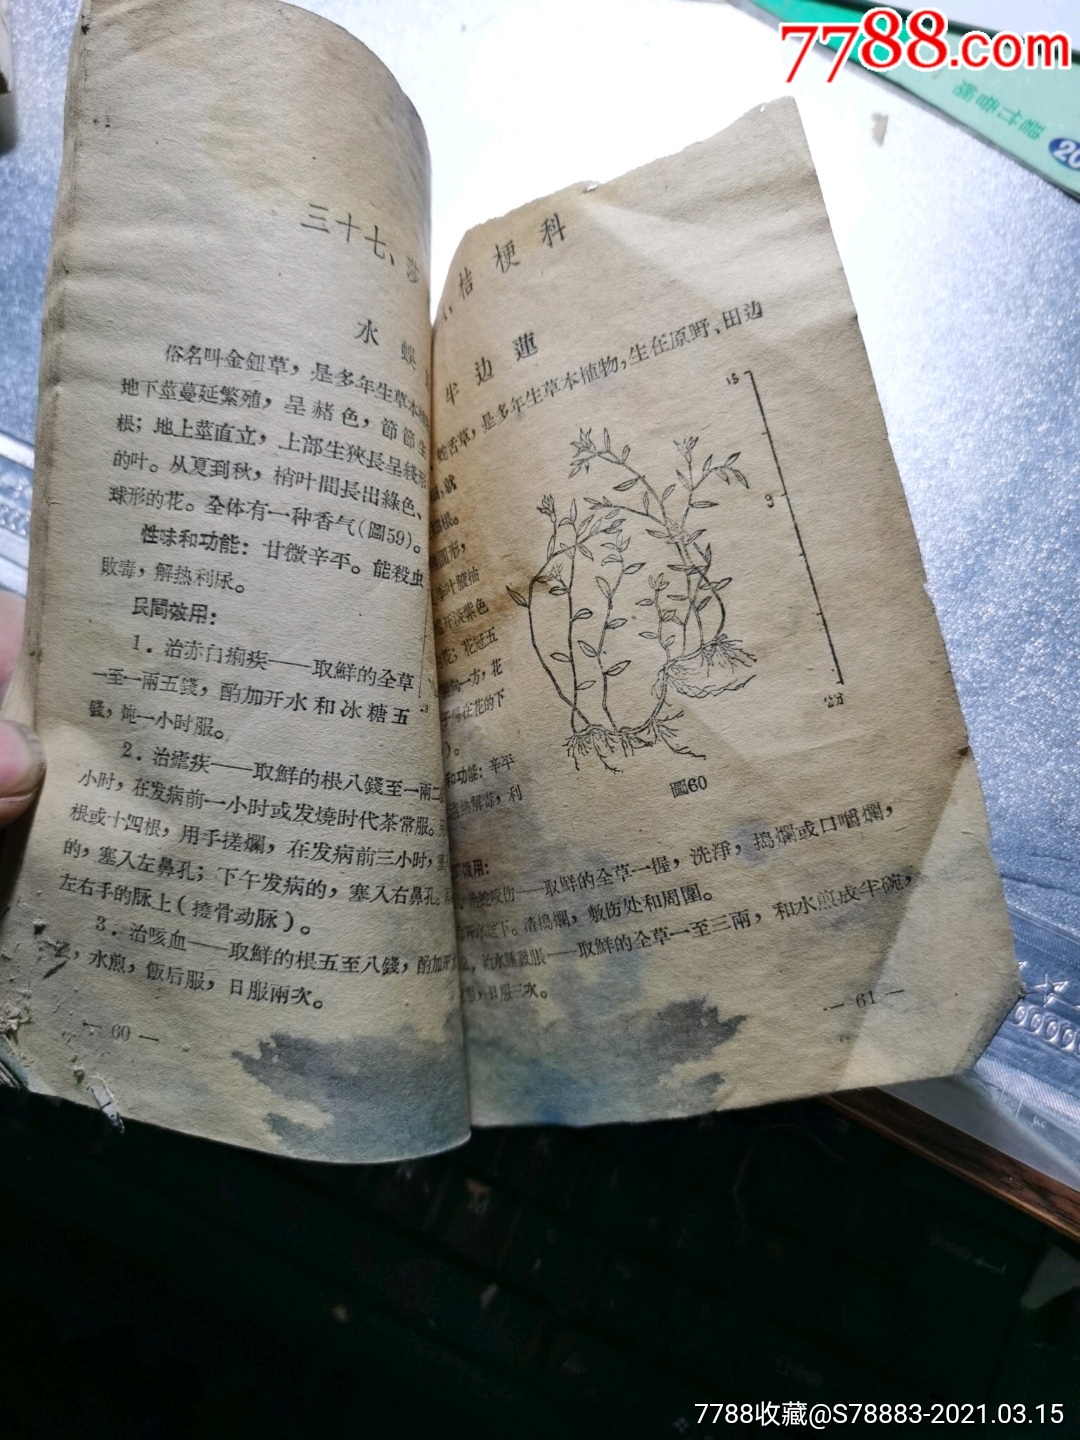 7788.com
三十七、莎
水蜈
俗名叫金鈕草，是多年生草本
地下莖蔓延繁殖，呈赭色，節節生
根；地上莖直立，上部生狹長呈綫形
的叶。从夏到秋，梢叶間長出綠色、
球形的花。全体有一种香气(圖59)。
性味和功能：甘微辛平。能殺虫
敗毒，解热利尿。
民間效用：
1．治赤白痢疾——取鮮的全草
一至一兩五錢，酌加开水和冰糖五
錢，燉一小时服。
2．治瘧疾——取鮮的根八錢至一兩二
小时，在发病前一小时或发燒时代茶常服。
根或十四根，用手搓爛，在发病前三小时，塞
的，塞入左鼻孔；下午发病的，塞入右鼻孔。
左右手的脉上(撓骨动脉)。
3．治咳血——取鮮的根五至八錢，酌加开
，水煎，飯后服，日服兩次。
— 60 —
桔梗科
半边蓮
蛇舌草，是多年生草本植物，生在原野、田边
，就
根。
圓形，
叶腋抽
开淡紫色
花；花冠五
一方，花
在花的下
)。
和功能：辛平
解毒，利
15
9
公分
圖60
效用：
伤——取鮮的全草一握，洗淨，搗爛或口嚼爛，
下。渣搗爛，敷伤处和周圍。
脹——取鮮的全草一至三兩，和水煎成半碗，
，日服三次。
— 61 —
20
7788收藏@S78883-2021.03.15